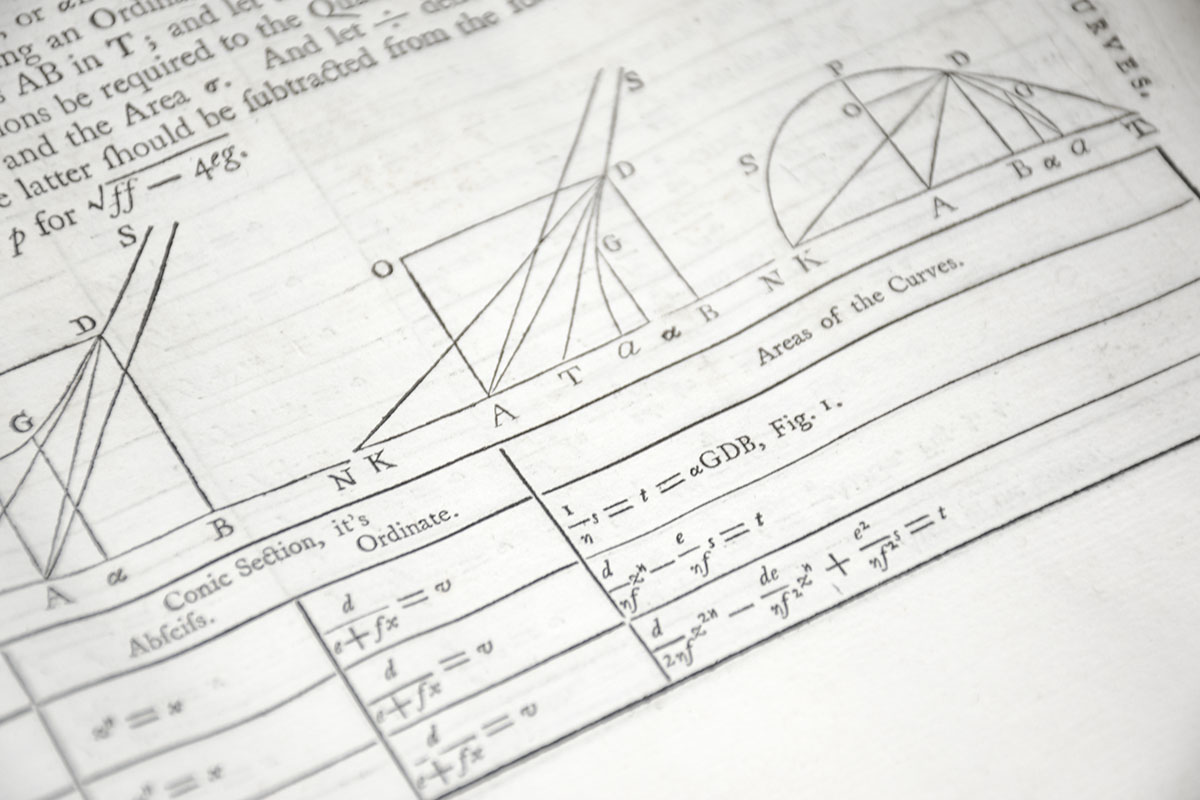 , or
ng an Ordin
AB in T ; and let
ions be required to the Qu
and the Area σ. And let ÷ de
e latter ſhould be ſubtracted from the
p for √ff — 4eg.
URVES.
S
D
G
A
α
B
S
O
D
G
N K
A
T
a
α
B
P
D
S
O
G
N K
A
B
α
a
T
Conic Section, it's
Abſciſs.
Ordinate.
Areas of the Curves.
zⁿ = x
d/(e+fx) = v
1/n s = t = αGDB, Fig. 1.
= x
d/(e+fx) = v
d/nf zⁿ — e/nf s = t
d/(e+fx) = v
d/2nf z²ⁿ — de/nf² zⁿ + e²/nf² s = t